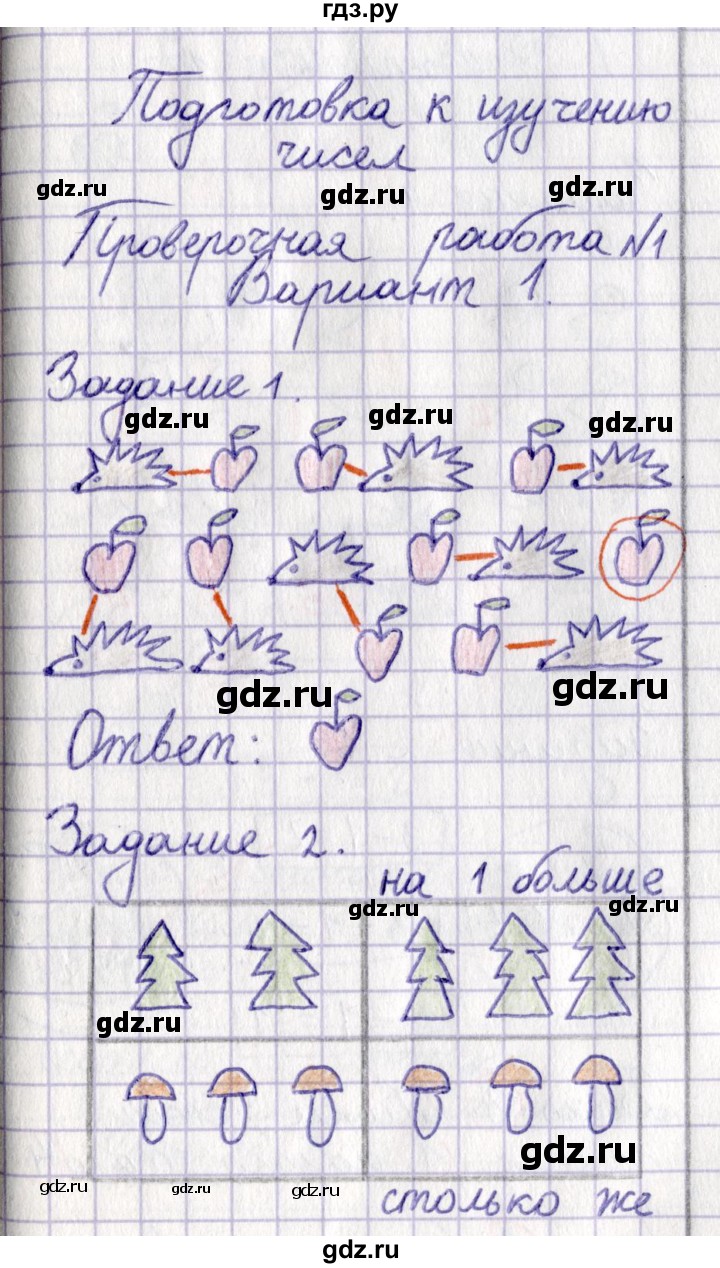 гдз.ру
Подготовка к изучению
чисел
gdz.ru gdz.ru gdz.ru
Проверочная работа №1
Вариант 1.
Задание 1.
gdz.ru gdz.ru gdz.ru
gdz.ru gdz.ru
Ответ:
Задание 2.
на 1 больше
gdz.ru gdz.ru
gdz.ru
gdz.ru
gdz.ru gdz.ru gdz.ru
столько же
gdz.ru